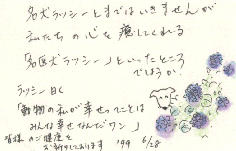 名犬ラッシーとまではいきませんが
私たちの心を癒してくれる
「名医犬ラッシー」といったところ
でしょうか
ラッシー曰く
「動物の私が幸せってことは
みんな幸せなんだワン」
皆様のご健康を
お祈りしております '99 6/28